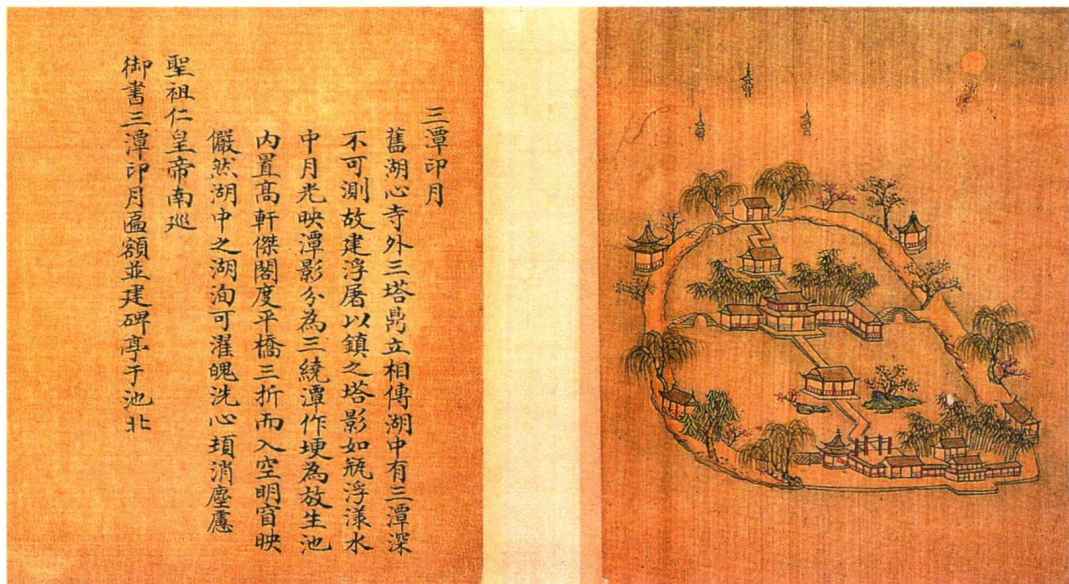 三潭印月
舊湖心寺外三塔鼎立相傳湖中有三潭深
不可測故建浮屠以鎮之塔影如瓶浮漾水
中月光映潭影分為三繞潭作埂為放生池
內置高軒傑閣度平橋三折而入空明窅映
儼然湖中之湖洵可濯魄洗心頊消塵慮
聖祖仁皇帝南巡
御書三潭印月匾額並建碑亭于池北